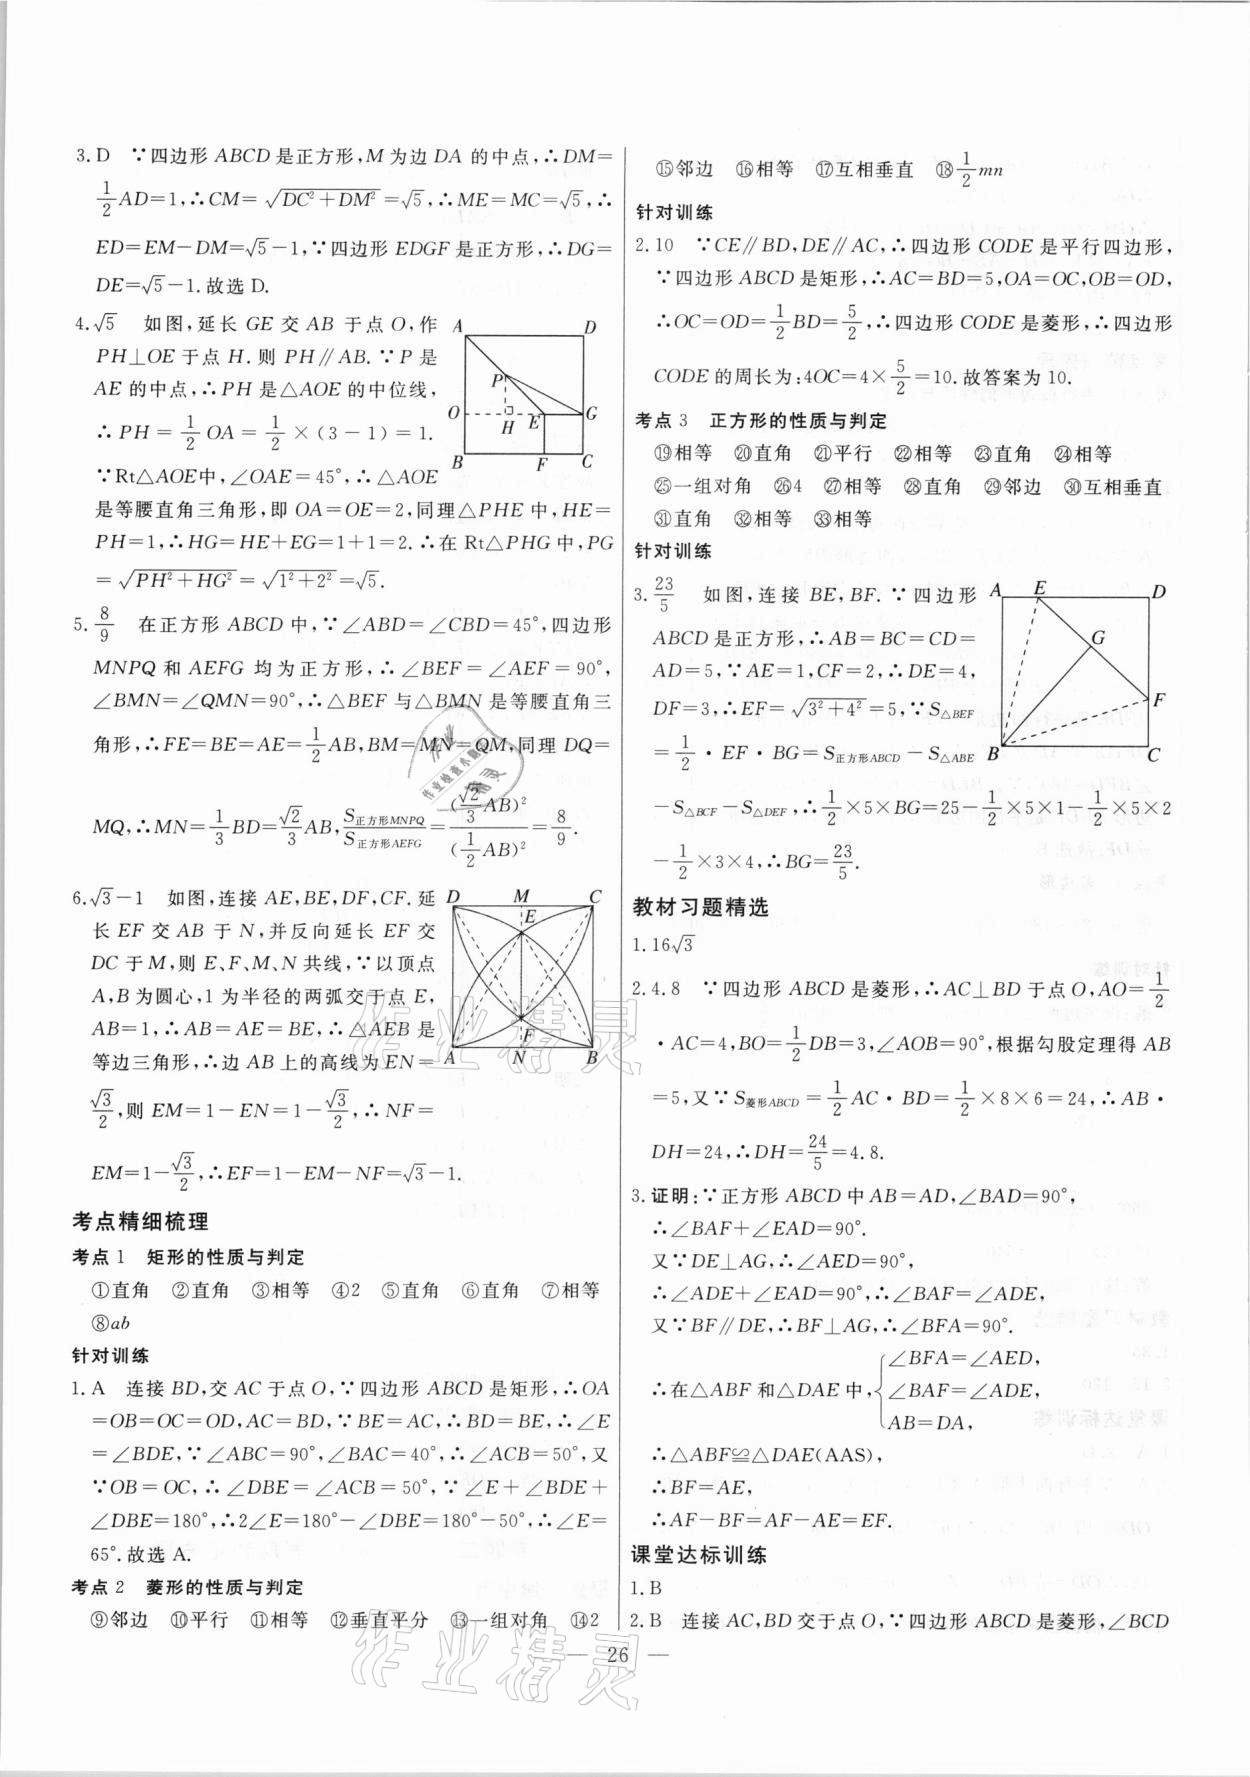 3. D ∵四边形 ABCD 是正方形,M 为边 DA 的中点,∴DM=
1/2 AD=1,∴CM=√(DC²+DM²)=√5,∴ME=MC=√5,∴
ED=EM-DM=√5-1,∵四边形 EDGF 是正方形,∴DG=
DE=√5-1.故选 D.
4.√5 如图,延长 GE 交 AB 于点 O,作
PH⊥OE 于点 H.则 PH∥AB.∵P 是
AE 的中点,∴PH 是△AOE 的中位线,
∴PH=1/2 OA=1/2×(3-1)=1.
∵Rt△AOE中,∠OAE=45°,∴△AOE
是等腰直角三角形,即 OA=OE=2,同理△PHE 中,HE=
PH=1,∴HG=HE+EG=1+1=2.∴在 Rt△PHG 中,PG
=√(PH²+HG²)=√(1²+2²)=√5.
A D P O H E G B F C
5. 8/9 在正方形 ABCD 中,∵∠ABD=∠CBD=45°,四边形
MNPQ 和 AEFG 均为正方形,∴∠BEF=∠AEF=90°,
∠BMN=∠QMN=90°,∴△BEF 与△BMN 是等腰直角三
角形,∴FE=BE=AE=1/2 AB,BM=MN=QM,同理 DQ=
MQ,∴MN=1/3 BD=√2/3 AB,S正方形MNPQ/S正方形AEFG=(√2/3 AB)²/(1/2 AB)²=8/9.
6.√3-1 如图,连接 AE,BE,DF,CF.延
长 EF 交 AB 于 N,并反向延长 EF 交
DC 于 M,则 E、F、M、N 共线,∵以顶点
A,B 为圆心,1 为半径的两弧交于点 E,
AB=1,∴AB=AE=BE,∴△AEB 是
等边三角形,∴边 AB 上的高线为 EN=
√3/2,则 EM=1-EN=1-√3/2,∴NF=
EM=1-√3/2,∴EF=1-EM-NF=√3-1.
D M C E F A N B
考点精细梳理
考点 1 矩形的性质与判定
①直角 ②直角 ③相等 ④2 ⑤直角 ⑥直角 ⑦相等
⑧ab
针对训练
1. A 连接 BD,交 AC 于点 O,∵四边形 ABCD 是矩形,∴OA
=OB=OC=OD,AC=BD,∵BE=AC,∴BD=BE,∴∠E
=∠BDE,∵∠ABC=90°,∠BAC=40°,∴∠ACB=50°,又
∵OB=OC,∴∠DBE=∠ACB=50°,∵∠E+∠BDE+
∠DBE=180°,∴2∠E=180°-∠DBE=180°-50°,∴∠E=
65°.故选 A.
考点 2 菱形的性质与判定
⑨邻边 ⑩平行 ⑪相等 ⑫垂直平分 ⑬一组对角 ⑭2
⑮邻边 ⑯相等 ⑰互相垂直 ⑱1/2 mn
针对训练
2. 10 ∵CE∥BD,DE∥AC,∴四边形 CODE 是平行四边形,
∵四边形 ABCD 是矩形,∴AC=BD=5,OA=OC,OB=OD,
∴OC=OD=1/2 BD=5/2,∴四边形 CODE 是菱形,∴四边形
CODE 的周长为:4OC=4×5/2=10.故答案为 10.
考点 3 正方形的性质与判定
⑲相等 ⑳直角 ㉑平行 ㉒相等 ㉓直角 ㉔相等
㉕一组对角 ㉖4 ㉗相等 ㉘直角 ㉙邻边 ㉚互相垂直
㉛直角 ㉜相等 ㉝相等
针对训练
3. 23/5 如图,连接 BE,BF.∵四边形
ABCD 是正方形,∴AB=BC=CD=
AD=5,∵AE=1,CF=2,∴DE=4,
DF=3,∴EF=√(3²+4²)=5,∵S△BEF
=1/2·EF·BG=S正方形ABCD-S△ABE
-S△BCF-S△DEF,∴1/2×5×BG=25-1/2×5×1-1/2×5×2
-1/2×3×4,∴BG=23/5.
A E D G F B C
教材习题精选
1. 16√3
2. 4.8 ∵四边形 ABCD 是菱形,∴AC⊥BD 于点 O,AO=1/2
·AC=4,BO=1/2 DB=3,∠AOB=90°,根据勾股定理得 AB
=5,又∵S菱形ABCD=1/2 AC·BD=1/2×8×6=24,∴AB·
DH=24,∴DH=24/5=4.8.
3. 证明:∵正方形 ABCD 中 AB=AD,∠BAD=90°,
∴∠BAF+∠EAD=90°.
又∵DE⊥AG,∴∠AED=90°,
∴∠ADE+∠EAD=90°,∴∠BAF=∠ADE,
又∵BF∥DE,∴BF⊥AG,∴∠BFA=90°.
∴在△ABF 和△DAE 中,{∠BFA=∠AED,
∠BAF=∠ADE,
AB=DA,
∴△ABF≌△DAE(AAS),
∴BF=AE,
∴AF-BF=AF-AE=EF.
课堂达标训练
1. B
2. B 连接 AC,BD 交于点 O,∵四边形 ABCD 是菱形,∠BCD
— 26 —
作业精灵
作业精灵